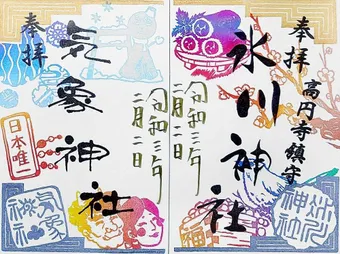 奉拝
高円寺鎮守
氷川神社
令和三年
二月二日
奉拝
気象神社
日本唯一
令和三年
二月二日
気象神社